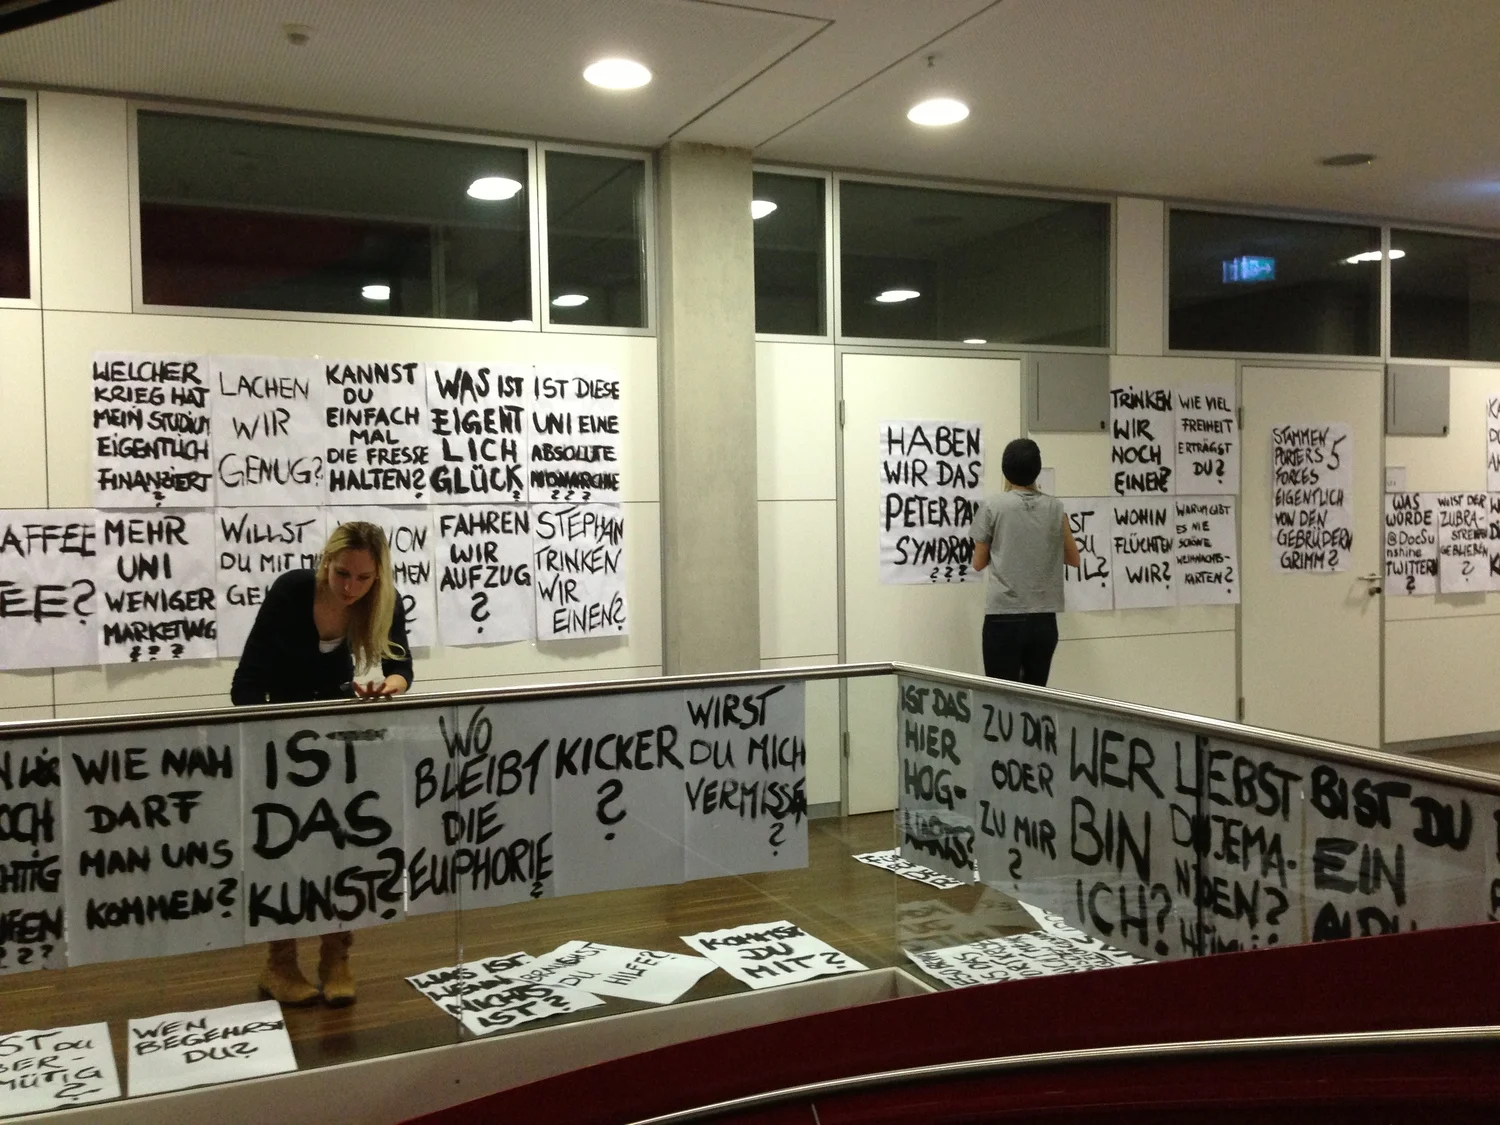 WELCHER
KRIEG HAT
MEIN STUDIUM
EIGENTLICH
FINANZIERT
?
LACHEN
WIR
GENUG?
KANNST
DU
EINFACH
MAL
DIE FRESSE
HALTEN?
WAS IST
EIGENT
LICH
GLÜCK?
IST DIESE
UNI EINE
ABSOLUTE
MONARCHIE
???
AFFEE
EE?
MEHR
UNI
WENIGER
MARKETING
???
WILLST
DU MIT MI
GE
VON
MEN
?
FAHREN
WIR
AUFZUG
?
STEPHAN
TRINKEN
WIR
EINEN?
HABEN
WIR DAS
PETER PAN
SYNDROM
???
TRINKEN
WIR
NOCH
EINEN?
WIE VIEL
FREIHEIT
ERTRÄGST
DU?
ST
DU
?
WOHIN
FLÜCHTEN
WIR?
WARUM GIBT
ES NIE
SCHÖNE
WEIHNACHTS-
KARTEN?
STAMMEN
PORTERS 5
FORCES
EIGENTLICH
VON DEN
GEBRÜDERN
GRIMM?
WAS
WÜRDE
@DocSu
nshine
TWITTERN
?
WO IST DER
ZUBRA-
STREIFEN
GEBLIEBEN
?
OCH
HTIG
UFEN
???
WIE NAH
DARF
MAN UNS
KOMMEN?
IST
DAS
KUNST?
WO
BLEIBT
DIE
EUPHORIE
?
KICKER
?
WIRST
DU MICH
VERMISSEN
?
IST DAS
HIER
HOG-
WARTS?
ZU DIR
ODER
ZU MIR
?
WER
BIN
ICH?
LIEBST
DU JEMA-
NDEN?
BIST DU
EIN
ST DU
BER-
MÜTIG
?
WEN
BEGEHRST
DU?
WAS IST
WENN
NICHTS
IST?
BRAUCHST
DU
HILFE?
KOMMST
DU
MIT?